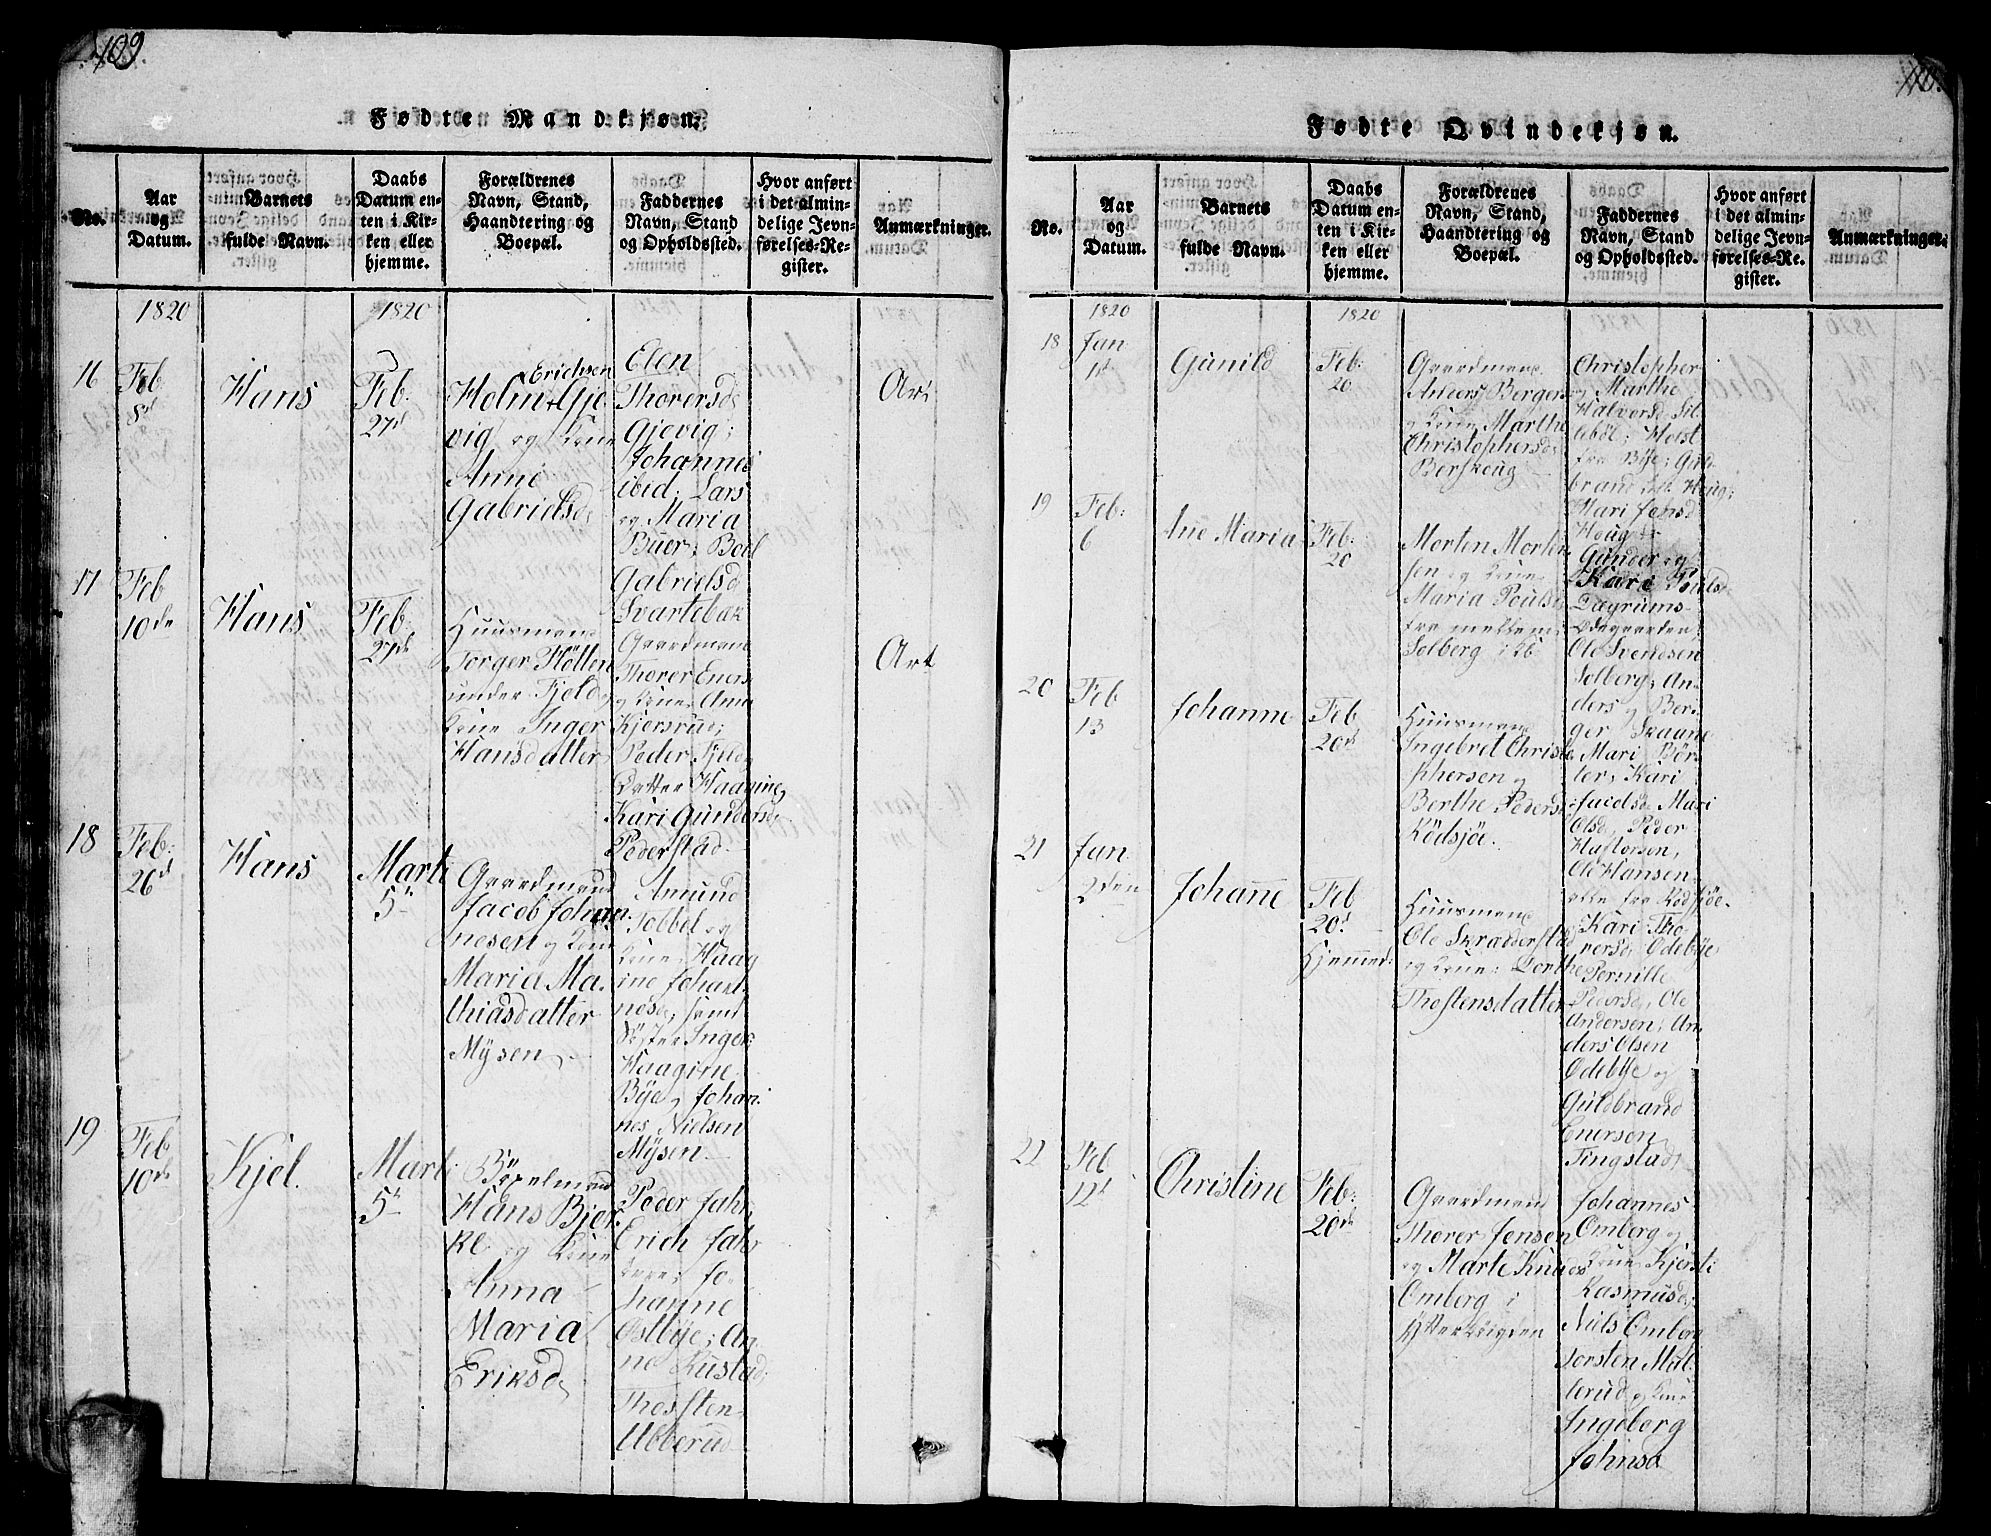 109.
Fødte Mandkjøn.
No.
Aar
og
Datum.
Barnets
fulde Navn.
Daabs
Datum en-
ten i Kir-
ken eller
hjemme.
Forældrenes
Navn, Stand,
Haandtering og
Boepæl.
Faddernes
Navn, Stand
og Opholdssted.
Hvor anført
i det almin-
delige Jevn-
førelses-Re-
gister.
Anmærkninger.
1820
1820
16
Feb
8de
Hans
Feb:
27d
Erichsen
Holm Gje
vig og Kone
Anne
Gabrielsd.
Elen
Thorersd
Gjevig;
Johannes
ibid; Lars
og Maria
Buer; Boel
Gabrielsd
Svartebæk
Art
17
Feb
10de
Hans
Feb:
27d
Huusmand
Torger Flötten
under Fjeld og
Kone Inger
Hansdatter
Gaardmand
Thorer Eners
og Kone Anne
Kjersrud;
Peder Fjeld
Datter Haagine
Kari Gundersd.
Pederstad
Art
18
Feb:
26d
Hans
Marti
5te
Gaardmand
Jacob Johan
nesen og Kone
Maria Ma
thiasdatter
Mÿsen
Amund
Tobbel og
Kone Haag
ine Johan
nesd;
Söster Inger
Haagine
Bÿe, Johan
nes Nielsen
Mÿsen
19
Feb
10de
Kjel.
Marti
5te
Hans Bjer
ke og Kone
Anna
Maria
Eriksd.
Peder Jahr,
Erich Jahr
Jo
hanne
Ostbÿe; An
ne Rustad;
Thosten
Ubberud
110.
Fødte Qvindekjøn.
No.
Aar
og
Datum.
Barnets
fulde Navn.
Daabs
Datum en-
ten i Kir-
ken eller
hjemme.
Forældrenes
Navn, Stand,
Haandtering og
Boepæl.
Faddernes
Navn, Stand
og Opholdssted.
Hvor anført
i det almin-
delige Jevn-
førelses-Re-
gister.
Anmærkninger.
1820
1820
18
Jan
Gunild
Feb:
20
Gaardmand
Anders Berger
og Kone Marthe
Christophersd.
Berskoug
Christopher
og Marthe
Halvorsd Sil
leböl; Holst
fra Bÿe; Gud
brand Houg;
Mari Jensd
Houg
19
Feb:
6
Ane Maria
Feb:
20
Morten Morten
sen og Kone
Maria Poulsd
fra mellem
Solberg
Gunder og
Kari Pouls
Dægrums-
Ödegaarden;
Ole Svendsen
Solberg; An
ders Ber
ger Skaune
20
Feb
13
Johanne
Feb
20d
Huusmand
Ingebret Christo
phersen og
Berthe Pedersd
Rödsjöe.
Mari Bör
ter; Kari
Jacelsd Mari
Olsd, Peder
Hastorsen,
Ole Hansen
alle fra Rödsjöe.
21
Jan
2den
Johanne
Feb
20d
Hjemmed:
Huusmand
Ole Skradderstad
og Kone Dorthe
Thostensdatter
Kari Tho
rersd, Odebÿe
Pernille
Pedersd, Ole
Andersen, An
ders Olsen
Odebÿe og
Guldbrand
Enersen
Tingstad
22
Feb
12d
Christine
Feb:
20de
Gaardmand
Thorer Jensen
og Marte Knuds
Omberg i
Johannes
Omberg og
Kone Kjersti
Rasmusd;
Niels Omberg
Torsten Mal
lerud og Kone
Ingeberg
Johnsd